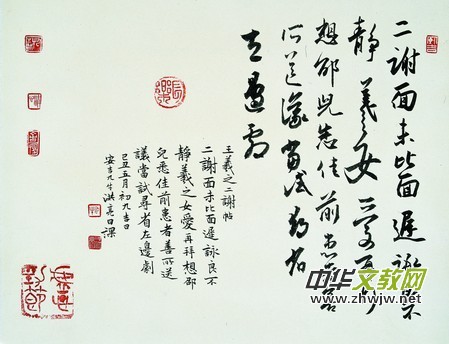 二謝面未比面遲詠良不
靜羲之女愛再拜
想邵兒悉佳前患者善
所送議當試尋省
左邊劇
王羲之二謝帖
二謝面未比面遲詠良不
靜羲之女愛再拜想邵
兒悉佳前患者善所送
議當試尋省左邊劇
己丑五月初九吉日
洪亮日課
中华文教网
www.zhwjw.net